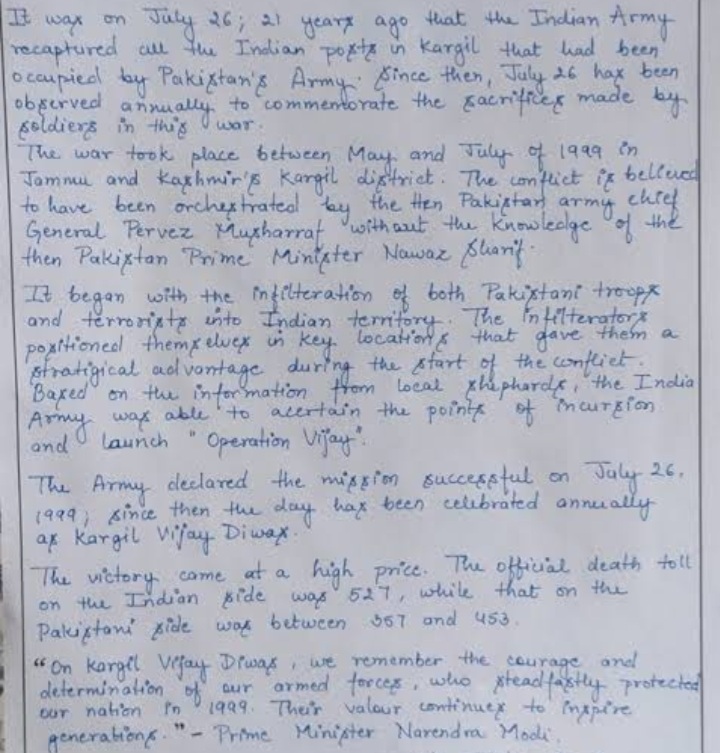 It was on July 26; 21 years ago that the Indian Army
recaptured all the Indian posts in Kargil that had been
occupied by Pakistan's Army. Since then, July 26 has been
observed annually to commemorate the sacrifices made by
soldiers in this war.
The war took place between May and July of 1999 in
Jammu and Kashmir's Kargil district. The conflict is believed
to have been orchestrated by the then Pakistan army chief
General Pervez Musharraf without the knowledge of the
then Pakistan Prime Minister Nawaz Sharif.
It began with the infilteration of both Pakistani troops
and terrorists into Indian territory. The Infilterators
positioned themselves in key locations that gave them a
stratigical advantage during the start of the conflict.
Based on the information from local shephards, the India
Army was able to acertain the points of incursion
and launch "Operation Vijay".
The Army declared the mission successful on July 26,
1999; since then the day has been celebrated annually
as Kargil Vijay Diwas.
The victory came at a high price. The official death toll
on the Indian side was 527, while that on the
Pakistani side was between 357 and 453.
"On Kargil Vijay Diwas, we remember the courage and
determination of our armed forces, who steadfastly protected
our nation in 1999. Their valour continues to inspire
generations." - Prime Minister Narendra Modi.